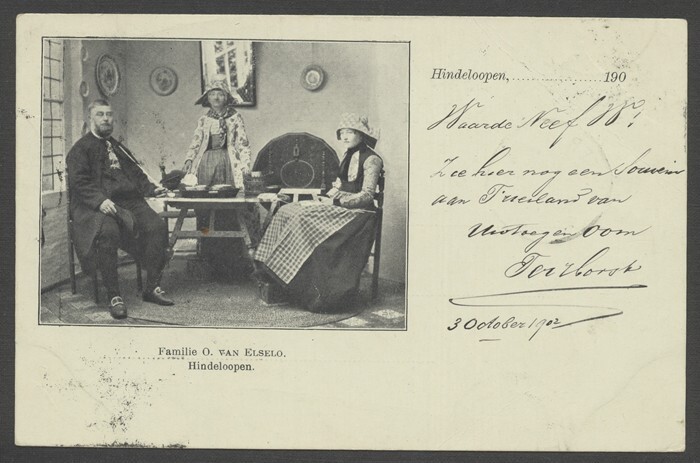 Hindeloopen, 190
Waarde Neef W!
Zie hier nog een Souvenir
aan Friesland van
Uw oom
Ter Horst
3 October 1902
Familie O. VAN ELSELO.
Hindeloopen.